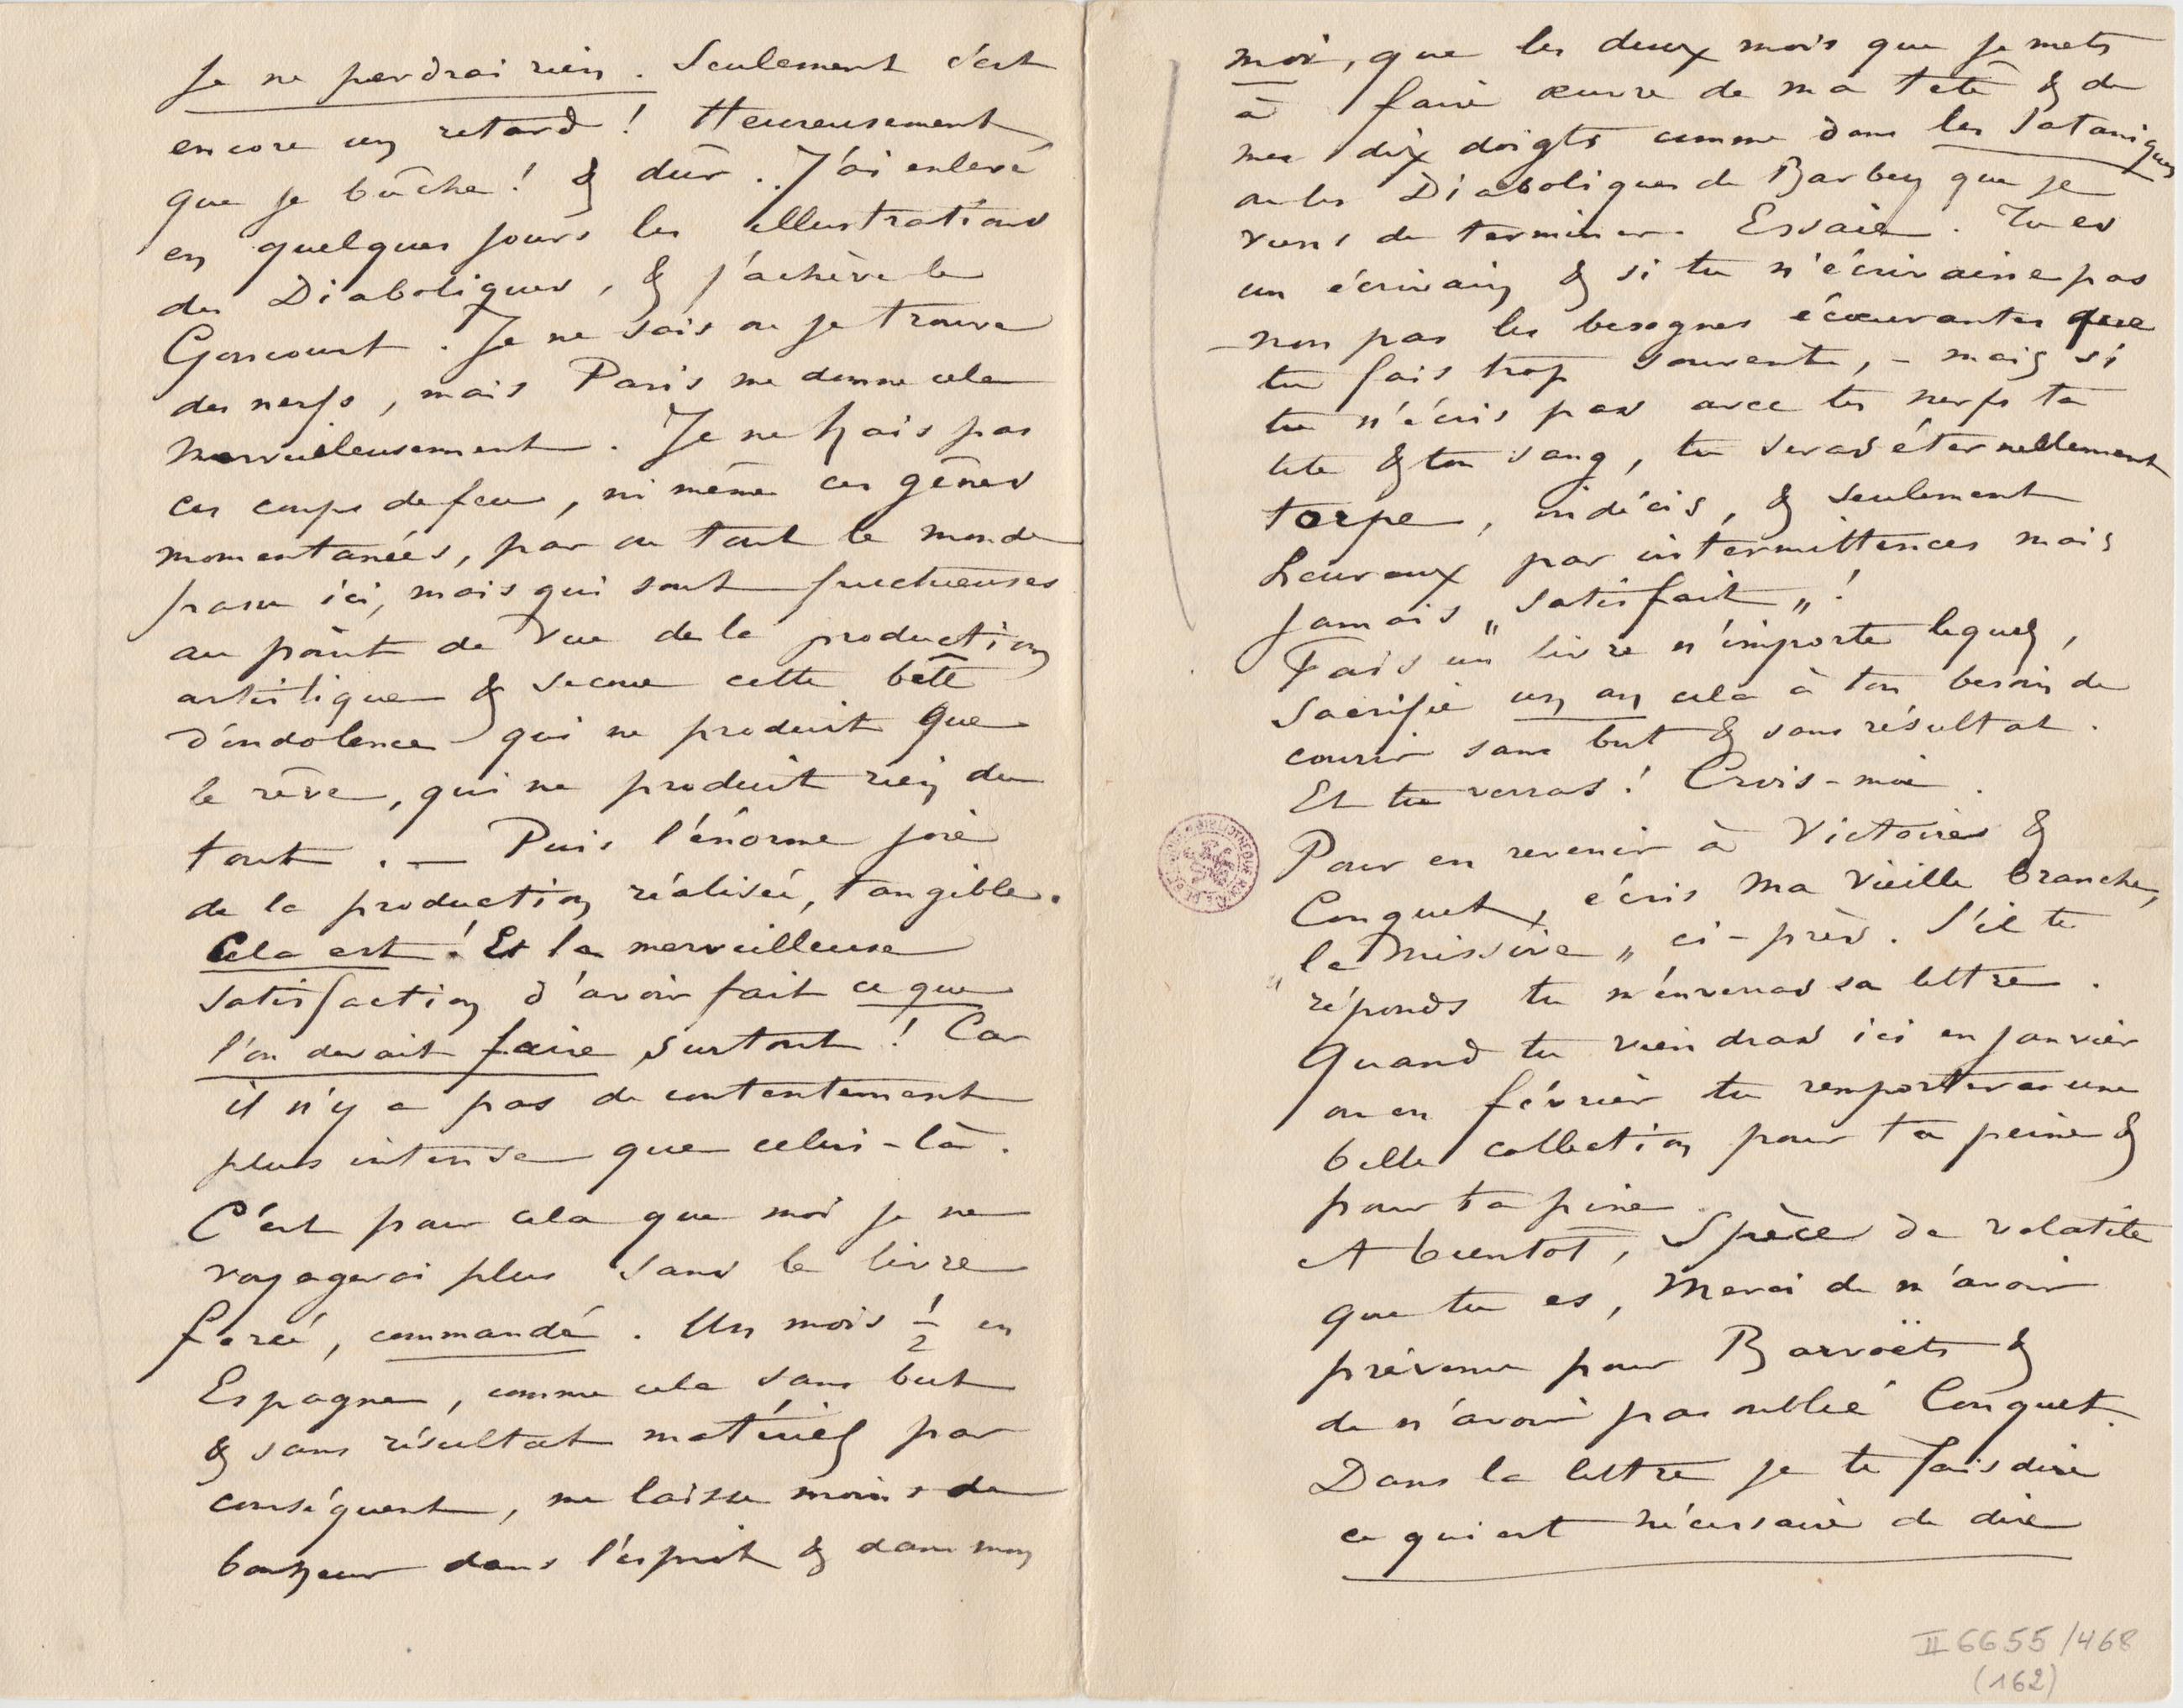 Je ne perdrai rien. Seulement c'est
encore un retard ! Heureusement
que je bûche ! & dûr. J'ai enlevé
en quelques jours les illustrations
des Diaboliques, & j'achève le
Goncourt. Je ne sais où je trouve
des nerfs, mais Paris me donne cela
merveilleusement. Je ne hais pas
ces coups de feu, ni même ces gênes
momentanées, par où tout le monde
passe ici, mais qui sont fructueuses
au point de vue de la production
artistique & secoue cette bête
d'indolence qui ne produit que
le rêve, qui ne produit rien du
tout. — Puis l'énorme joie
de la production réalisée, tangible.
Cela est ! Et la merveilleuse
satisfaction d'avoir fait ce que
l'on devait faire surtout ! Car
il n'y a pas de contentement
plus intense que celui-là.
C'est pour cela que moi je ne
voyagerai plus sans le livre
forcé, commandé. Un mois 1/2 en
Espagne, comme cela sans but
& sans résultat matériel par
conséquent, me laisse moins de
bonheur dans l'esprit & dans mon
moi, que les deux mois que je mets
à faire œuvre de ma tête & de
mes dix doigts comme dans les Sataniques
ou les Diaboliques de Barbey que je
viens de terminer. Essaie. Tu es
un écrivain & si tu n'écrivaine pas
– non pas les besognes écœurantes que
tu fais trop souvent, – mais si
tu n'écris pas avec tes nerfs ta
tête & ton sang, tu seras éternellement
torpe, indécis, & seulement
heureux par intermittences mais
jamais „satisfait„ !
Fais un livre n'importe lequel,
sacrifie un an cela à ton besoin de
courir sans but & sans résultat.
Et tu verras ! Crois-moi.
Pour en revenir à Victoires &
Conquet, écris ma vieille branche,
„la missive„ ci-près. S'il te
réponds tu m'enverras sa lettre.
Quand tu viendras ici en janvier
ou en février tu remporteras une
belle collection pour ta peine &
pour ta pine.
A bientôt, Spèce de volatile
que tu es, Merci de m'avoir
prévenu pour Barvoëts &
de n'avoir pas oublié Conquet.
Dans la lettre je te fais dire
ce qui est nécessaire de dire
II 6655/468
(162)